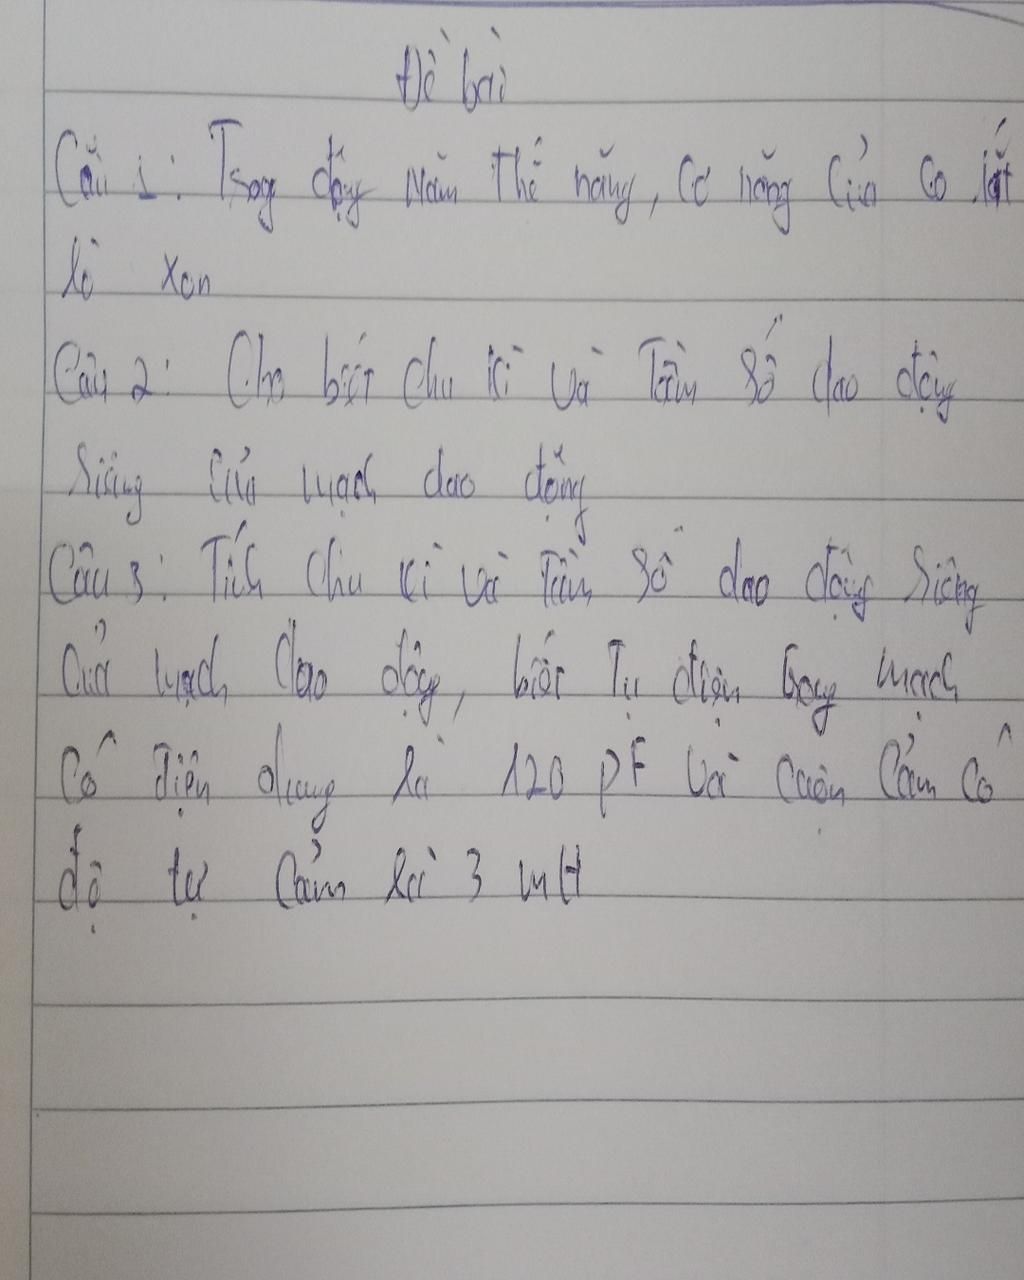 Đề bài
Câu 1: Trong động năm thế năng, cơ năng của co lắt
lò xon
Câu 2: Cho biết chu kì và Tần số dao động
riêng của mạch dao động
Câu 3: Tính chu kì và Tần số dao động riêng
của mạch dao động, biết Tụ điện trong mạch
có điện dung là 120 pF và cuộn cảm có
độ tự cảm là 3 mH